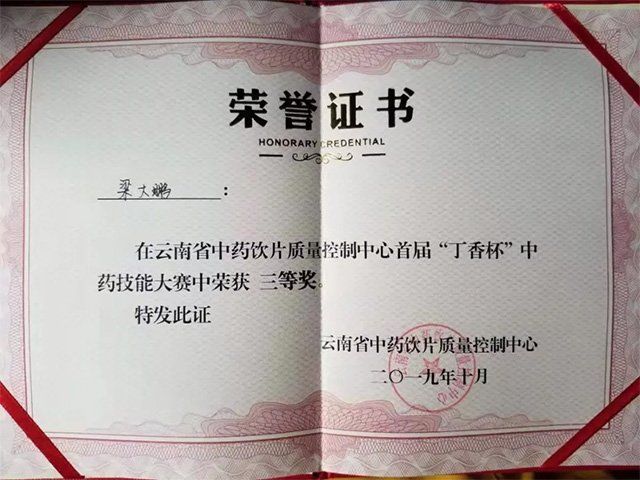 荣誉证书
HONORARY CREDENTIAL
梁大鹏：
在云南省中药饮片质量控制中心首届“丁香杯”中
药技能大赛中荣获 三等奖。
特发此证
云南省中药饮片质量控制中心
二〇一九年十月